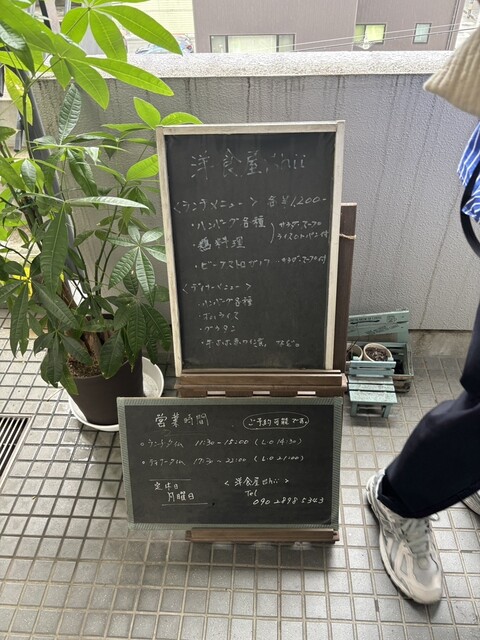 洋食屋 Shii
<ランチメニュー> 各¥1,200-
・ハンバーグ各種
・鶏料理
サラダ・スープ
ライスorパン付
・ビーフストロガノフ -サラダ・スープ付
<ディナーメニュー>
・ハンバーグ各種
・オムライス
・グラタン
etc。
営業時間 ご予約可能です。
ランチタイム 11:30-15:00 (L.O 14:30)
ディナータイム 17:30-22:00 (L.O 21:00)
定休日
月曜日
<洋食屋Shii>
Tel
090 2898 5343